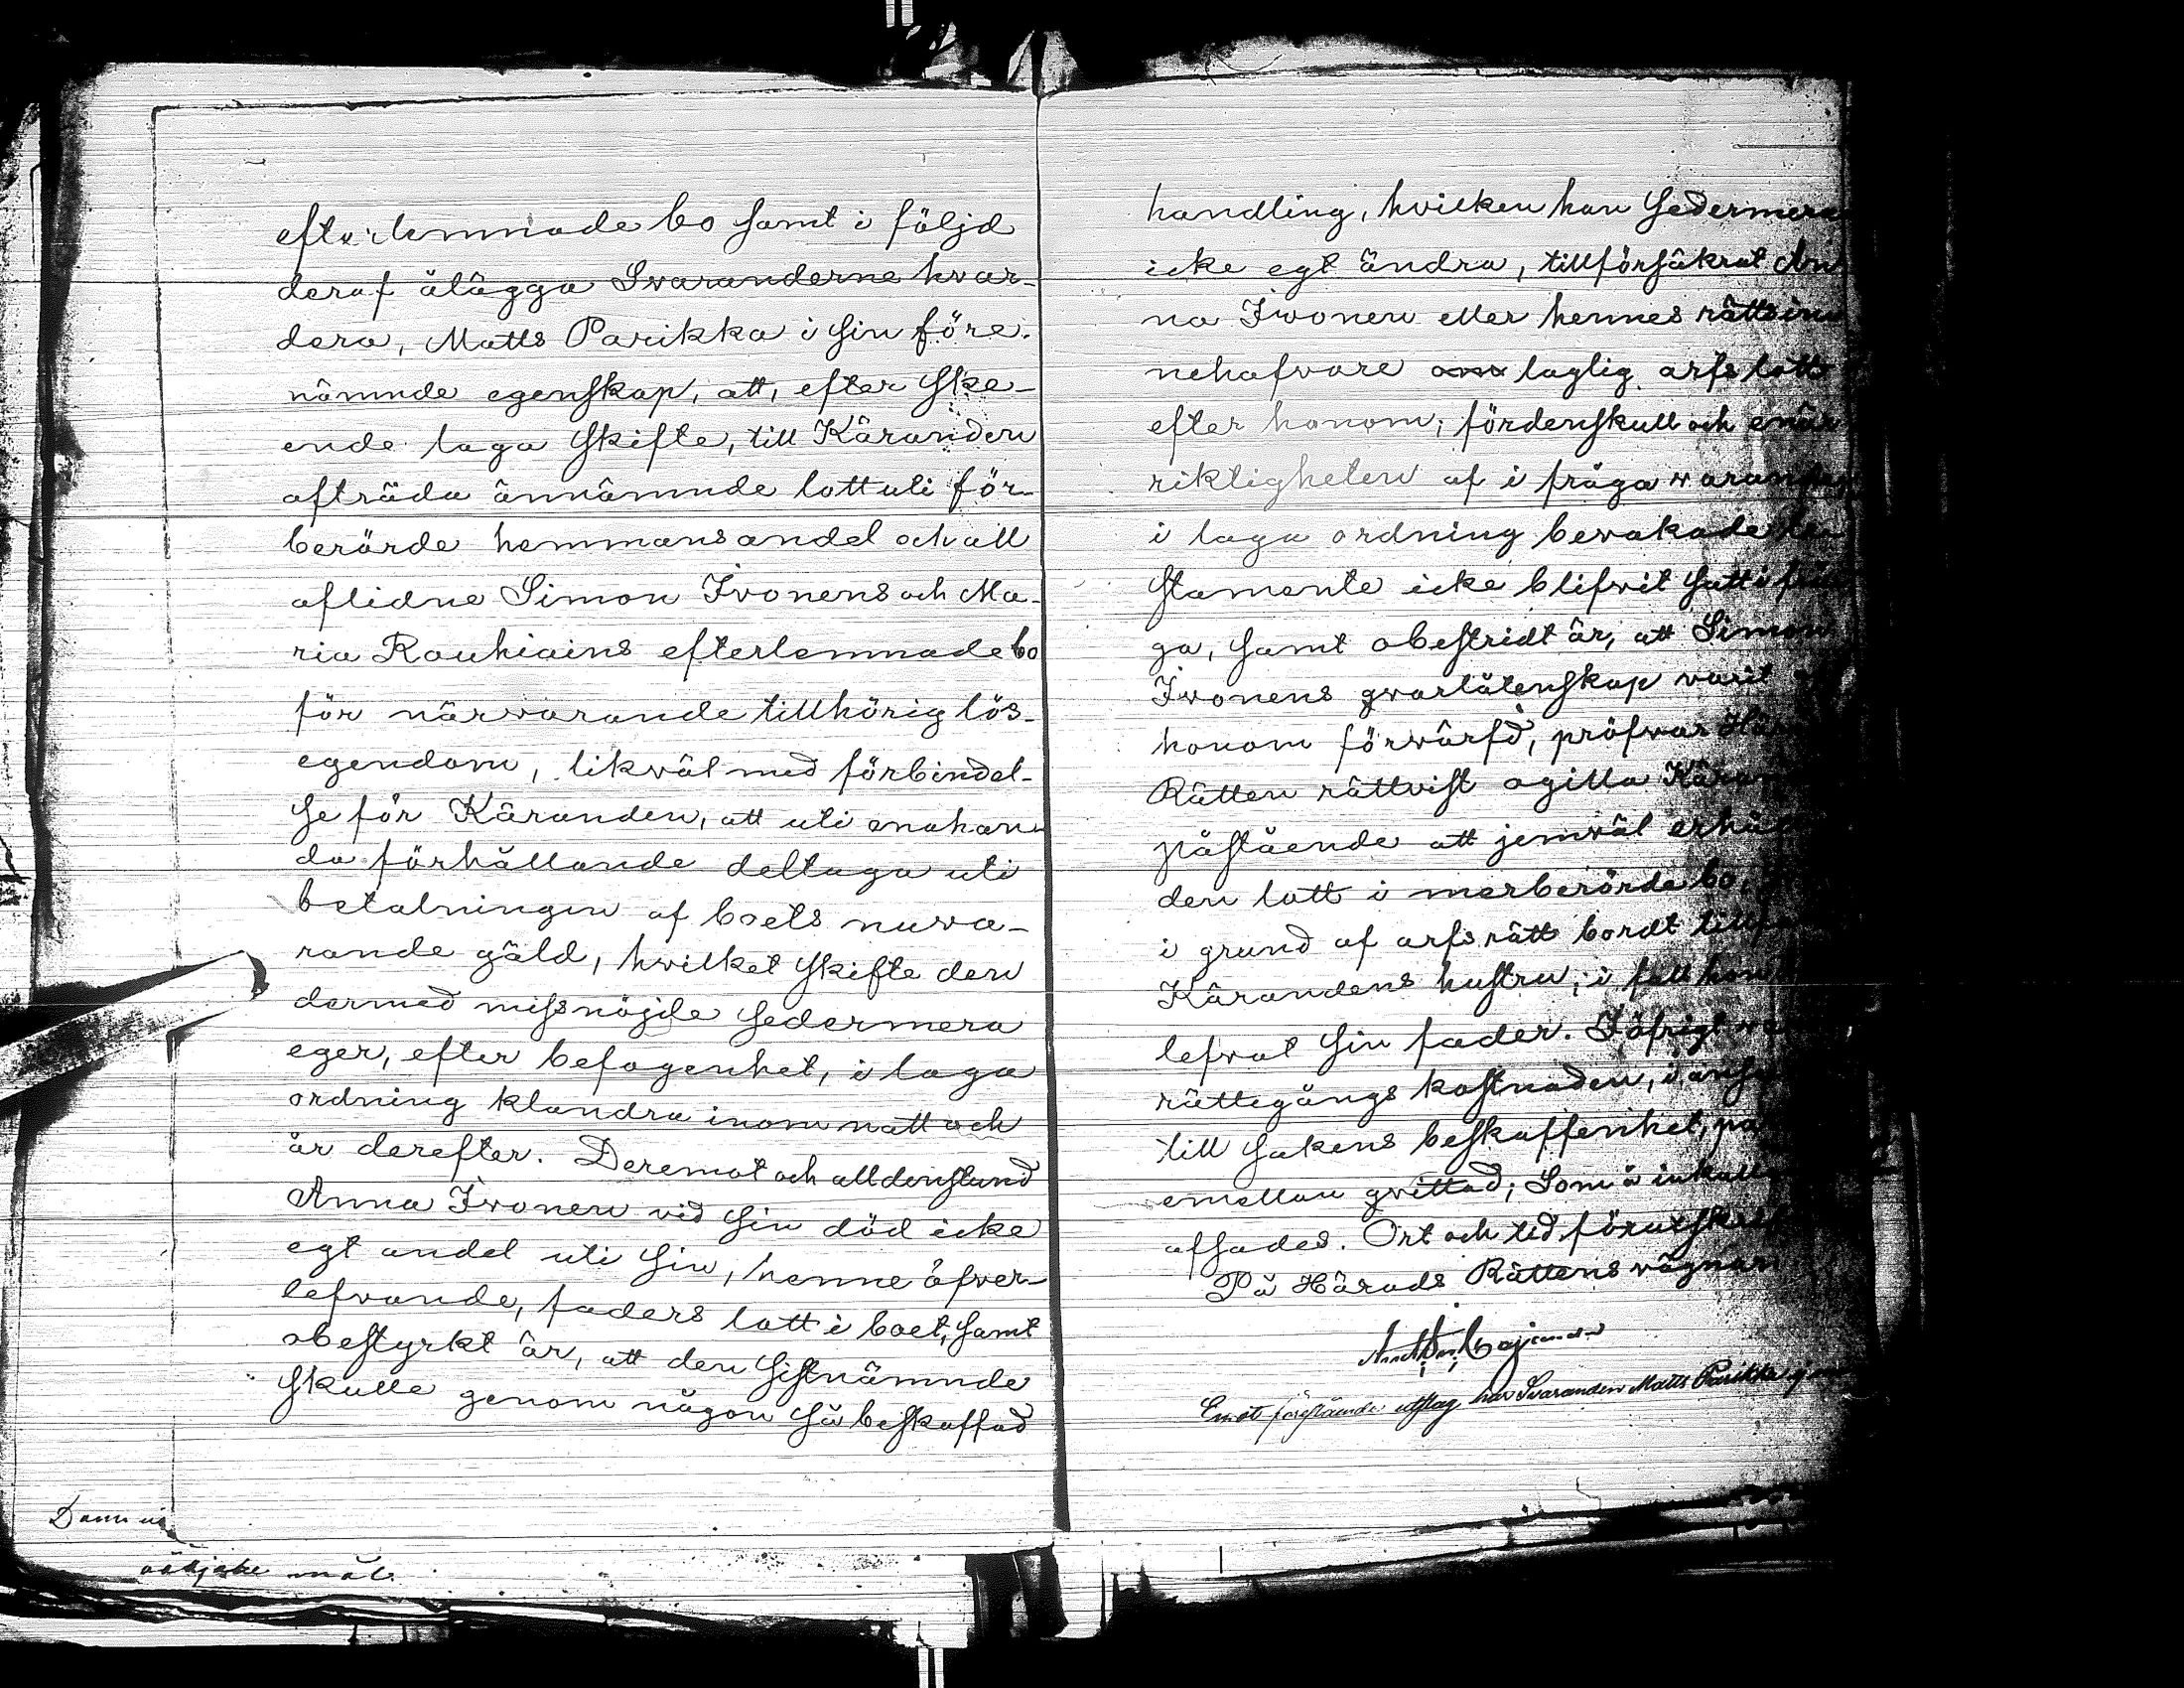 efterlemnade bo samt i följd
deraf ålägga Svaranderne hvar-
dera, Matts Parikka i sin före-
nämnde egenskap, att, efter ske-
ende laga skifte, till Käranden
afträda ännämnde lott uti för-
berörde hemmansandel och all
aflidne Simon Ivonens och Ma-
ria Rauhiains efterlemnade bo
för närvarande tillhörig lös-
egendom, likväl med förbindel-
se för Käranden, att uti enahan-
da förhållande deltaga uti
betalningen af boets nuva-
rande gäld, hvilket skifte den
dermed missnöjde sedermera
eger, efter befogenhet, i laga
ordning klandra inom natt och
år derefter. Deremot och alldenstund
Anna Ivonen vid sin död icke
egt andel uti sin, henne öfver-
lefvande, faders lott i boet, samt
obestyrkt är, att den sistnämnde
skulle genom någon så beskaffad
handling, hvilken han sedermera
icke egt ändra, tillförsäkrat An
na Ivonen eller hennes rättsin
nehafvare laglig arfslott
efter honom; fördenskull och enär
riktigheten af i fråga
i laga ordning bevakade
stamente icke blifvit satt i
ga, samt obestridt är, att Simon
Ivonens qvarlåtenskap varit
honom förvärfd, pröfvar
Rätten rättvist ogilla
påstående att jemväl
den lott i merberörde bo,
i grund af arfsrätt bordt
Kärandens hustru, i fall hon
lefvat sin fader. I öfrigt
rättegångs kostnaden, i
till sakens beskaffenhet,
emellan qvittad; Som å
afsades. Ort och tid
På Härads Rättens vägnar
Emot förestående utslag har Svaranden Matts Parikka
Dom i
mål